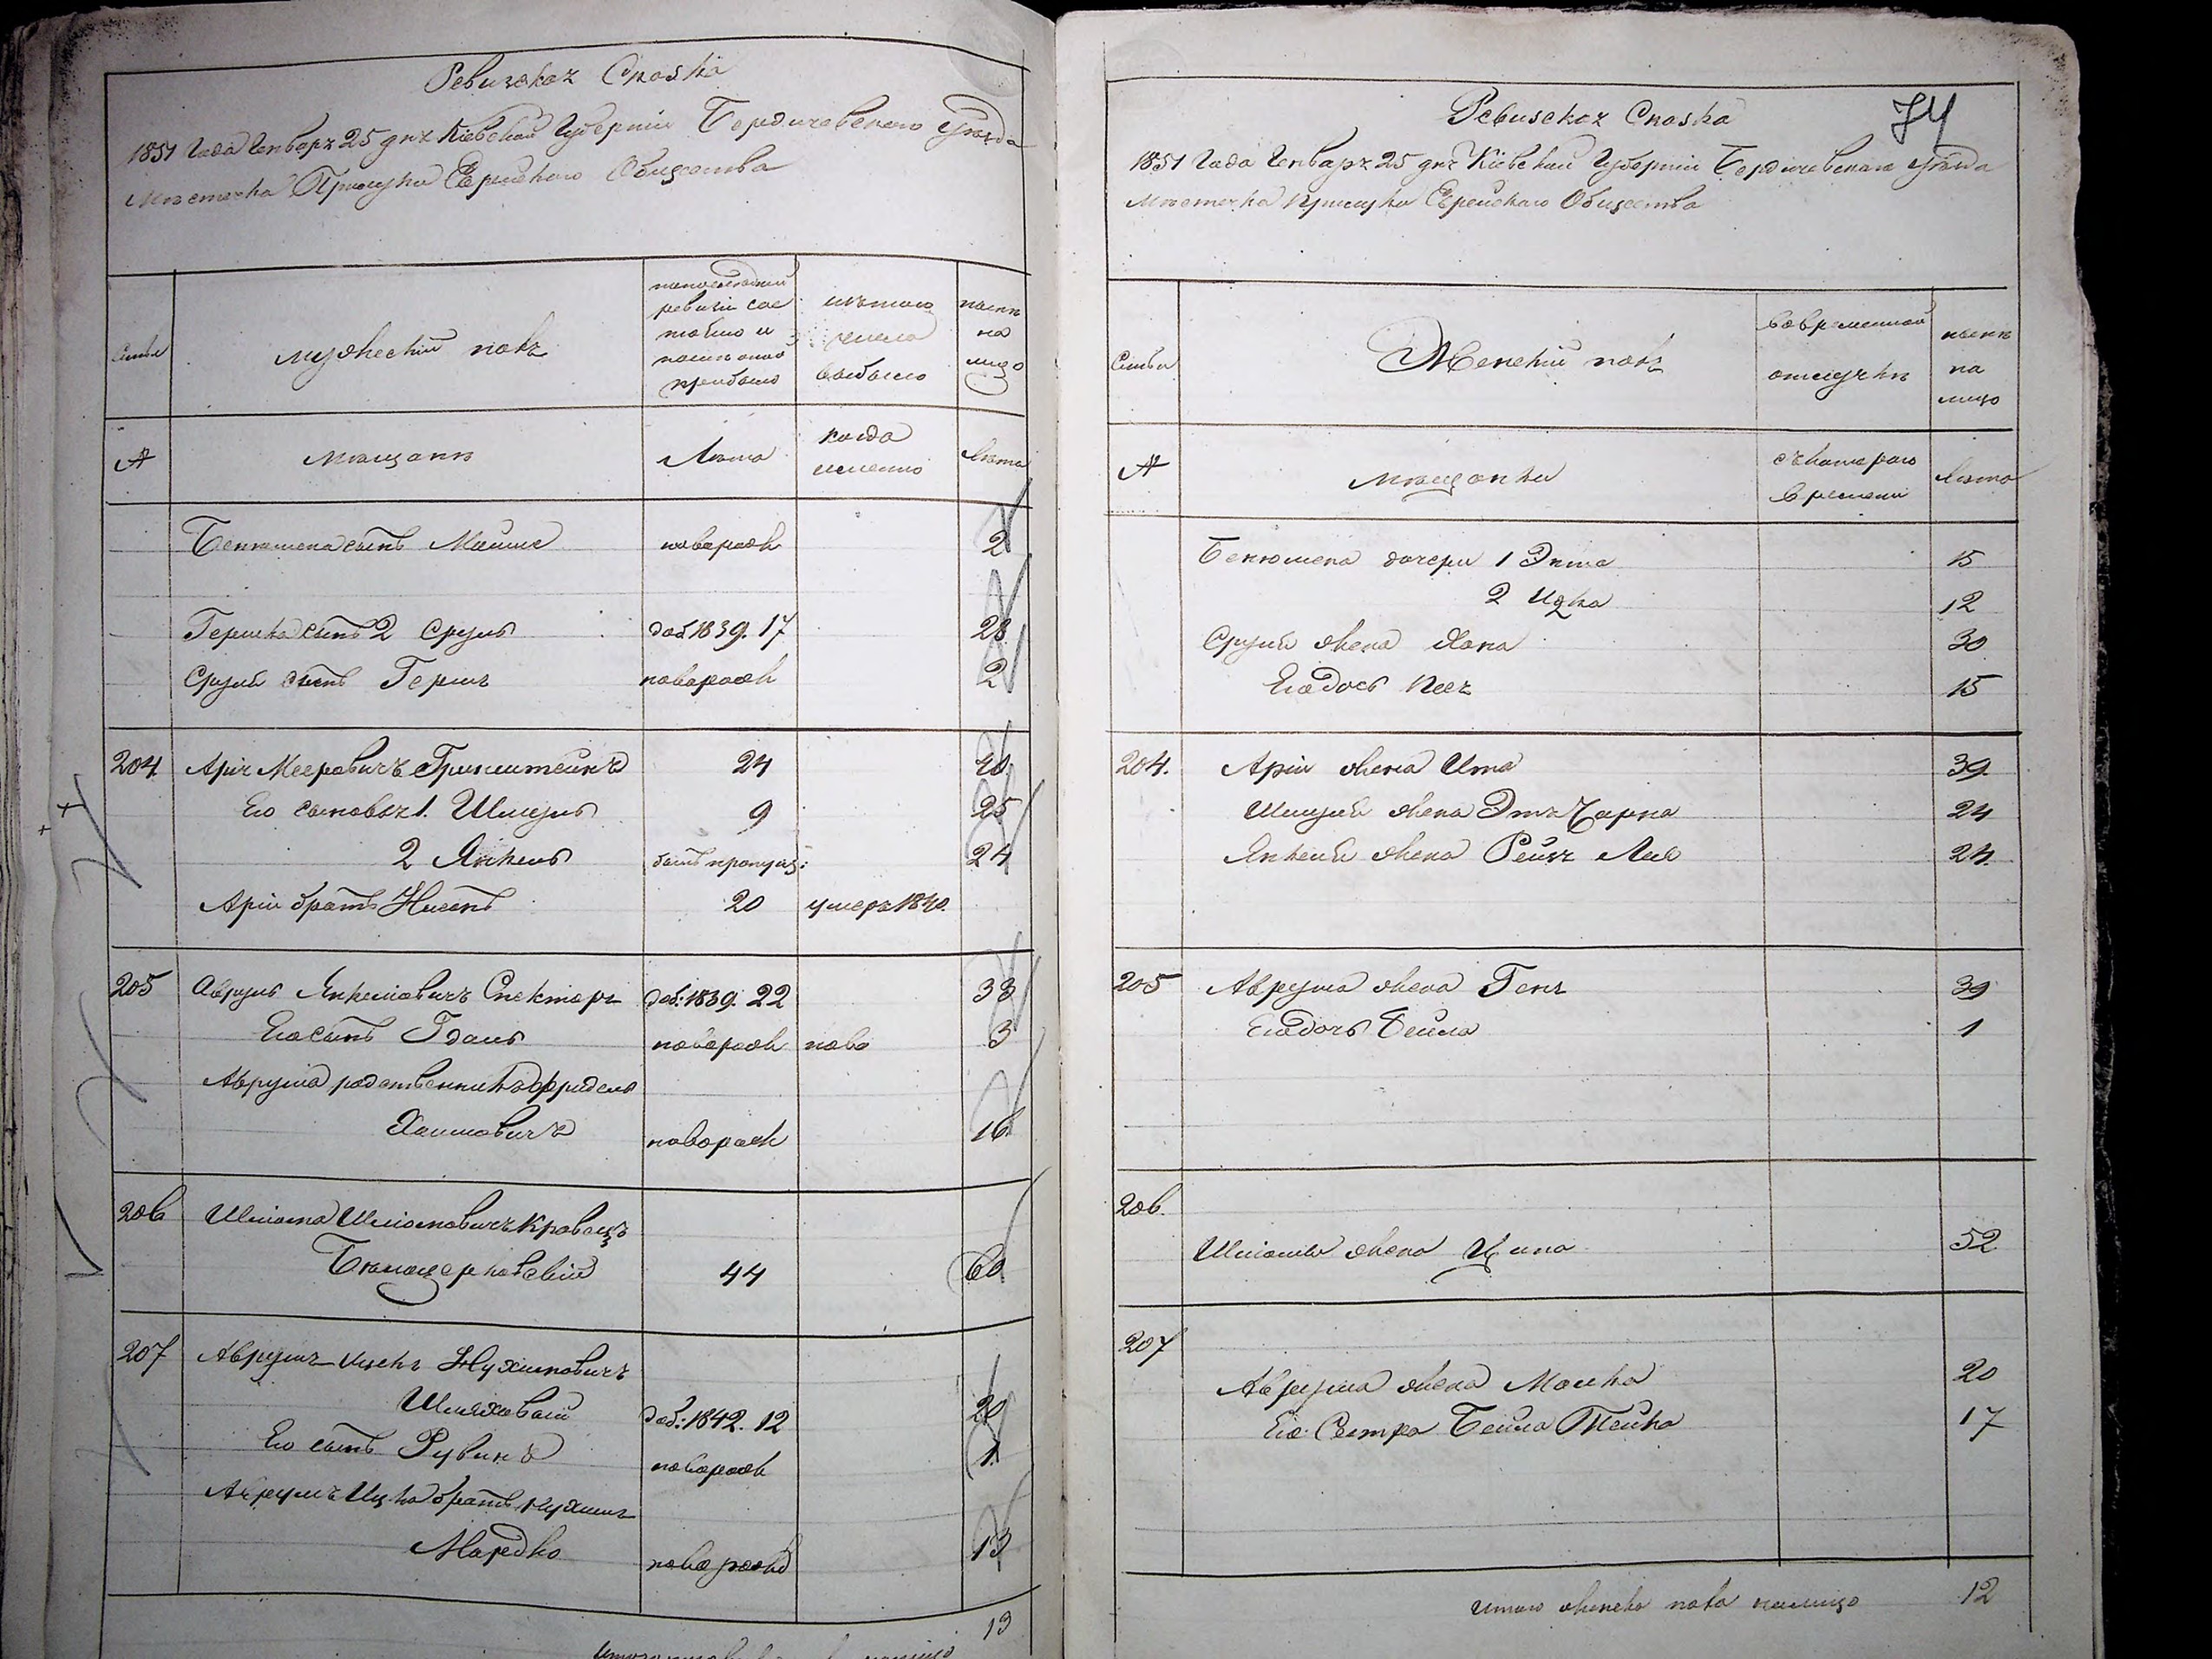 Ревизская Сказка
1851 Года Генваря 25 дня Кіевской Губерніи Бердичевского Уѣзда
Мѣстечка Прилуки Еврейского Общества
Семьи
мужеский полъ
по последней
ревизіи сос
тояло и
после оной
прибыло
изътого
числа
выбыло
ныне
на
лицо
№
мѣщане
Лѣта
когда
именно
Лѣта
Бенюмена сынъ Мошко новорож 2
Гершка сынъ 2 Сруль доб 1839. 17 28
Сруля сынъ Гершъ новорож 2
204. Арія Мееровичъ Гринштейнъ 24 40
Его сыновья 1. Шмуль 9 25
2 Янкель былъ пропущ: 24
Арія братъ Нисель 20 умеръ 1840.
205 Аврумъ Янкелевичъ Спекторъ доб: 1839. 22 33
Его сынъ Гдаль новорож ново 3
Аврума родственникъ Фридель
Хаимовичъ новорож 16
206 Шлиома Шлиомовичъ Кравецъ
Белоцерковскій 44 60
207 Аврумъ-Ицекъ Нухимовичъ
Шляховый доб: 1842. 12 20
Его сынъ Рувинъ новорож 1
Аврумъ Ицка братъ Нухимъ
Мордко новорожд 13
13
74
Ревизская Сказка
1851 Года Генваря 25 дня Кіевской Губерніи Бердичевского Уѣзда
Мѣстечка Прилуки Еврейского Общества
Семьи
Женскій полъ
во временной
отлучкѣ
ныне
на
лицо
№
мѣщанки
съ котораго
времени
Лѣта
Бенюмена дочери 1 Энта 15
2 Ицка 12
Сруля жена Хана 30
Его дочь Песя 15
204. Арія жена Ита 39
Шмуля жена Этя Чарна 24
Янкеля жена Рейзя Лея 24
205 Аврума жена Геня 39
Его дочь Бейла 1
206.
Шлиомы жена Ципа 52
207
Аврума жена Малка 20
Его Сестра Бейла Тейка 17
Итого женска пола налицо 12